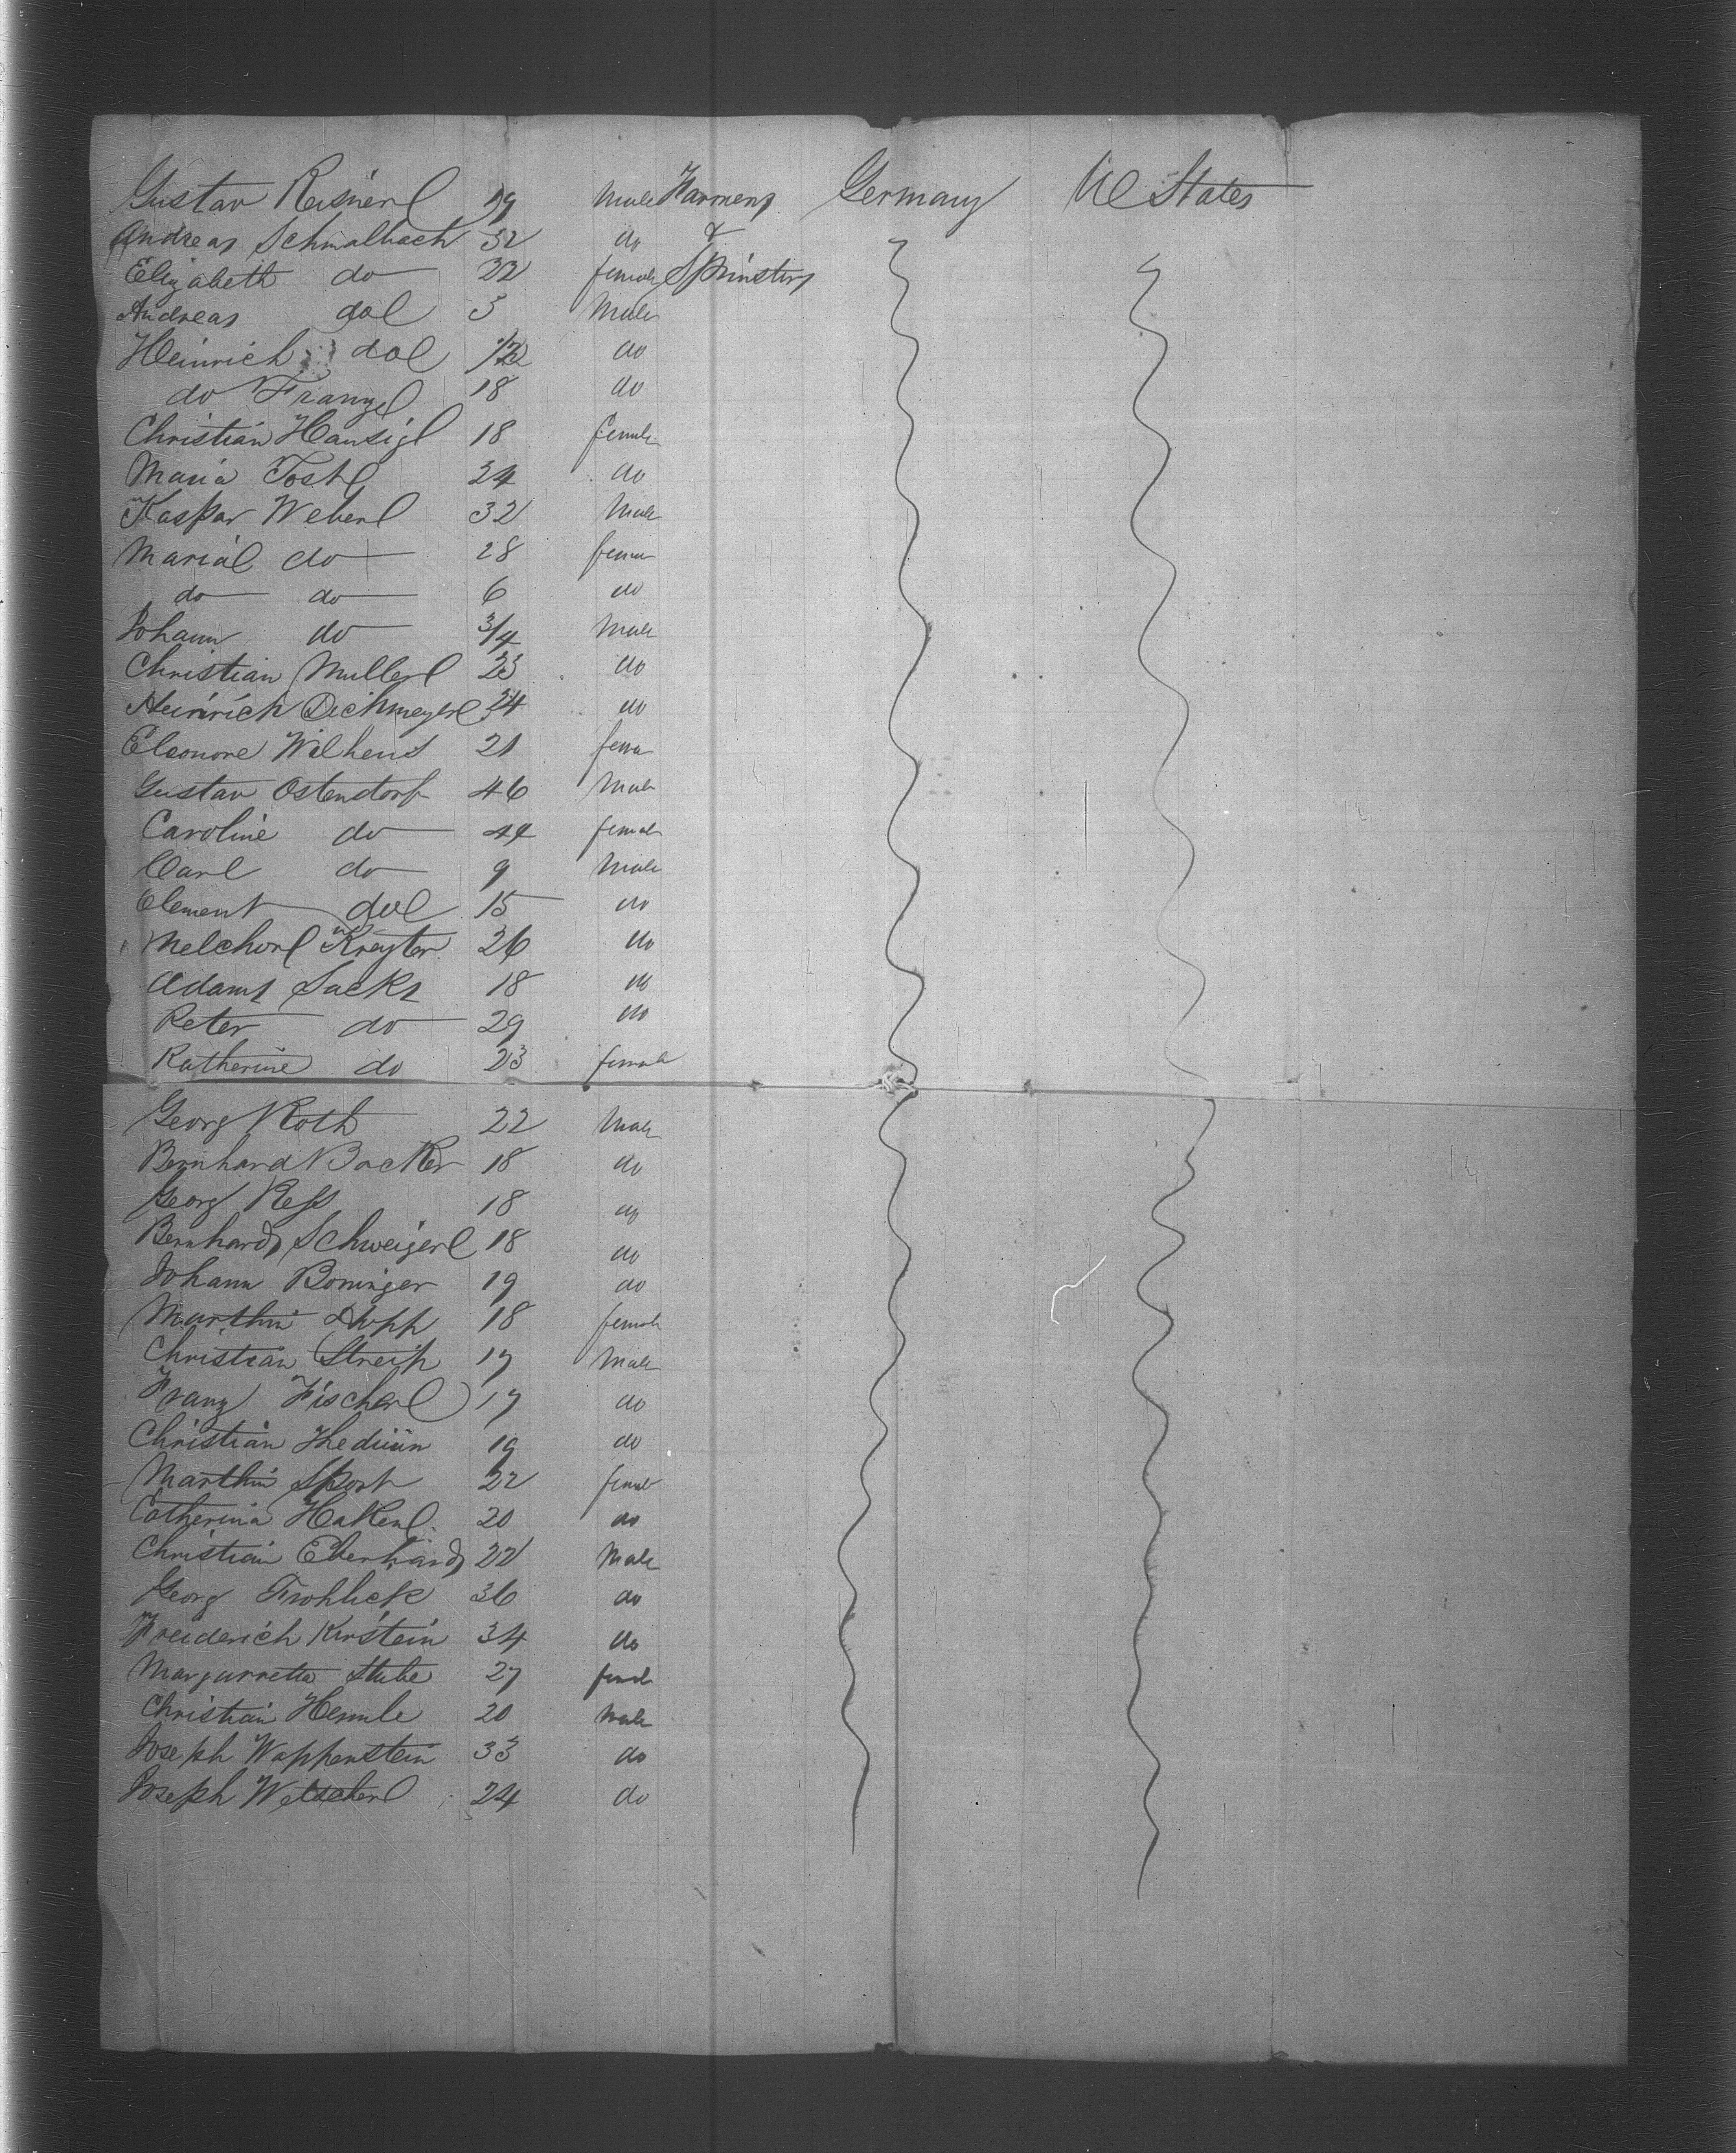 Gustav Reisner 19 Male Farmers Germany U States
Andreas Schmalbach 32 do &
Elizabeth do 22 female Spinsters
Andreas do 3 Male
Heinrich do 1/2 do
do Franz 18 do
Christian Hansig 18 female
Maria Tost 24 do
Kaspar Weber 32 Male
Maria do 28 fema
do do 6 do
Johann do 3/4 Male
Christian Muller 23 do
Heinrich Dichmeyer 24 do
Eleonore Wilkens 21 fema
Gustav Ostendorf 46 Male
Caroline do 44 female
Carl do 9 Male
Clement do 15 do
Melchor Kreyter 26 do
Adams Sacks 18 do
Peter do 29 do
Katherine do 23 female
Georg Roth 22 Male
Bernhard Backer 18 do
Georg Ress 18 do
Bernhard Schweiger 18 do
Johann Boninger 19 do
Marthin 18 female
Christian Streip 17 Male
Franz Fischer 17 do
Christian 19 do
Marthin Sport 22 female
Catherina Haken 20 do
Christian Eberhard 22 Male
Georg Frohlick 36 do
Freiderich Kirstein 34 do
Margarretta Stube 27 female
Christian Hemle 20 Male
Joseph Wappenstein 33 do
Joseph 24 do